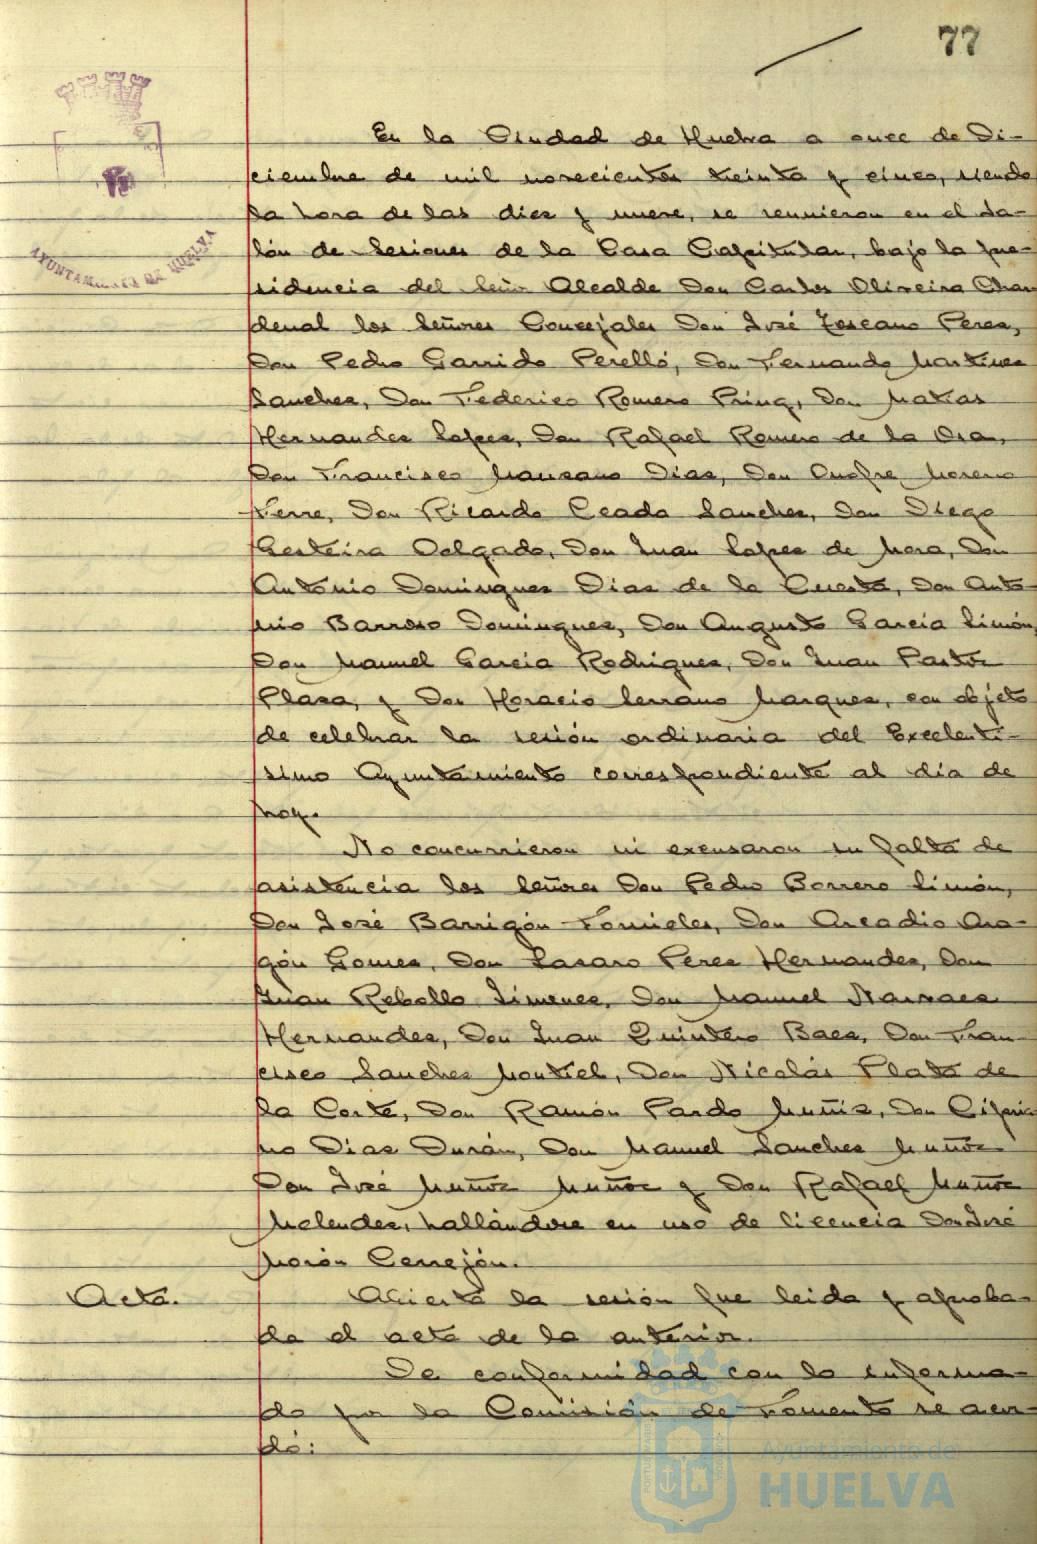 77
AYUNTAMIENTO DE HUELVA
En la Ciudad de Huelva a once de Di-
ciembre de mil novecientos treinta y cinco, siendo
la hora de las diez y nueve, se reunieron en el Sa-
lón de Sesiones de la Casa Capitular, bajo la pre-
sidencia del Señor Alcalde Don Carlos Oliveira Chan
denal los Señores Concejales Don José Toscano Peres,
Don Pedro Garrido Perelló, Don Fernando Martines
Sanches, Don Federico Romero Prinq, Don Matias
Hernandes Lopes, Don Rafael Romero de la Osa,
Don Francisco Manzano Dias, Don Onofre Moreno
Ferre, Don Ricardo Ceada Sanches, Don Diego
Gesteira Delgado, Don Juan Lopes de Mora, Don
Antonio Domingues Dias de la Cuesta, Don Anto-
nio Barroso Domingues, Don Augusto Garcia Simón,
Don Manuel Garcia Rodrigues, Don Juan Pastor
Plasa, y Don Horacio Serrano Marques, con objeto
de celebrar la sesión ordinaria del Excelentí-
simo Ayuntamiento correspondiente al día de
hoy.
No concurrieron ni excusaron su falta de
asistencia los Señores Don Pedro Borrero Simón,
Don José Barrigón Fornieles, Don Arcadio Ara-
gón Gomes, Don Lasaro Peres Hernandes, Don
Juan Rebollo Jimenes, Don Manuel Narvaes
Hernandes, Don Juan Quintero Baes, Don Fran-
cisco Sanches Montiel, Don Nicolás Plata de
la Corte, Don Ramón Pardo Muñiz, Don Cipria
no Dias Durán, Don Manuel Sanches Muñoz
Don José Muñoz Muñoz y Don Rafael Muñoz
Melendes, hallándose en uso de licencia Don José
Morón Cerrejón.
Acta.
Abierta la sesión fue leida y aproba-
da el acta de la anterior.
De conformidad con lo informa-
do por la Comisión de Fomento se acor-
dó:
Ayuntamiento de
HUELVA